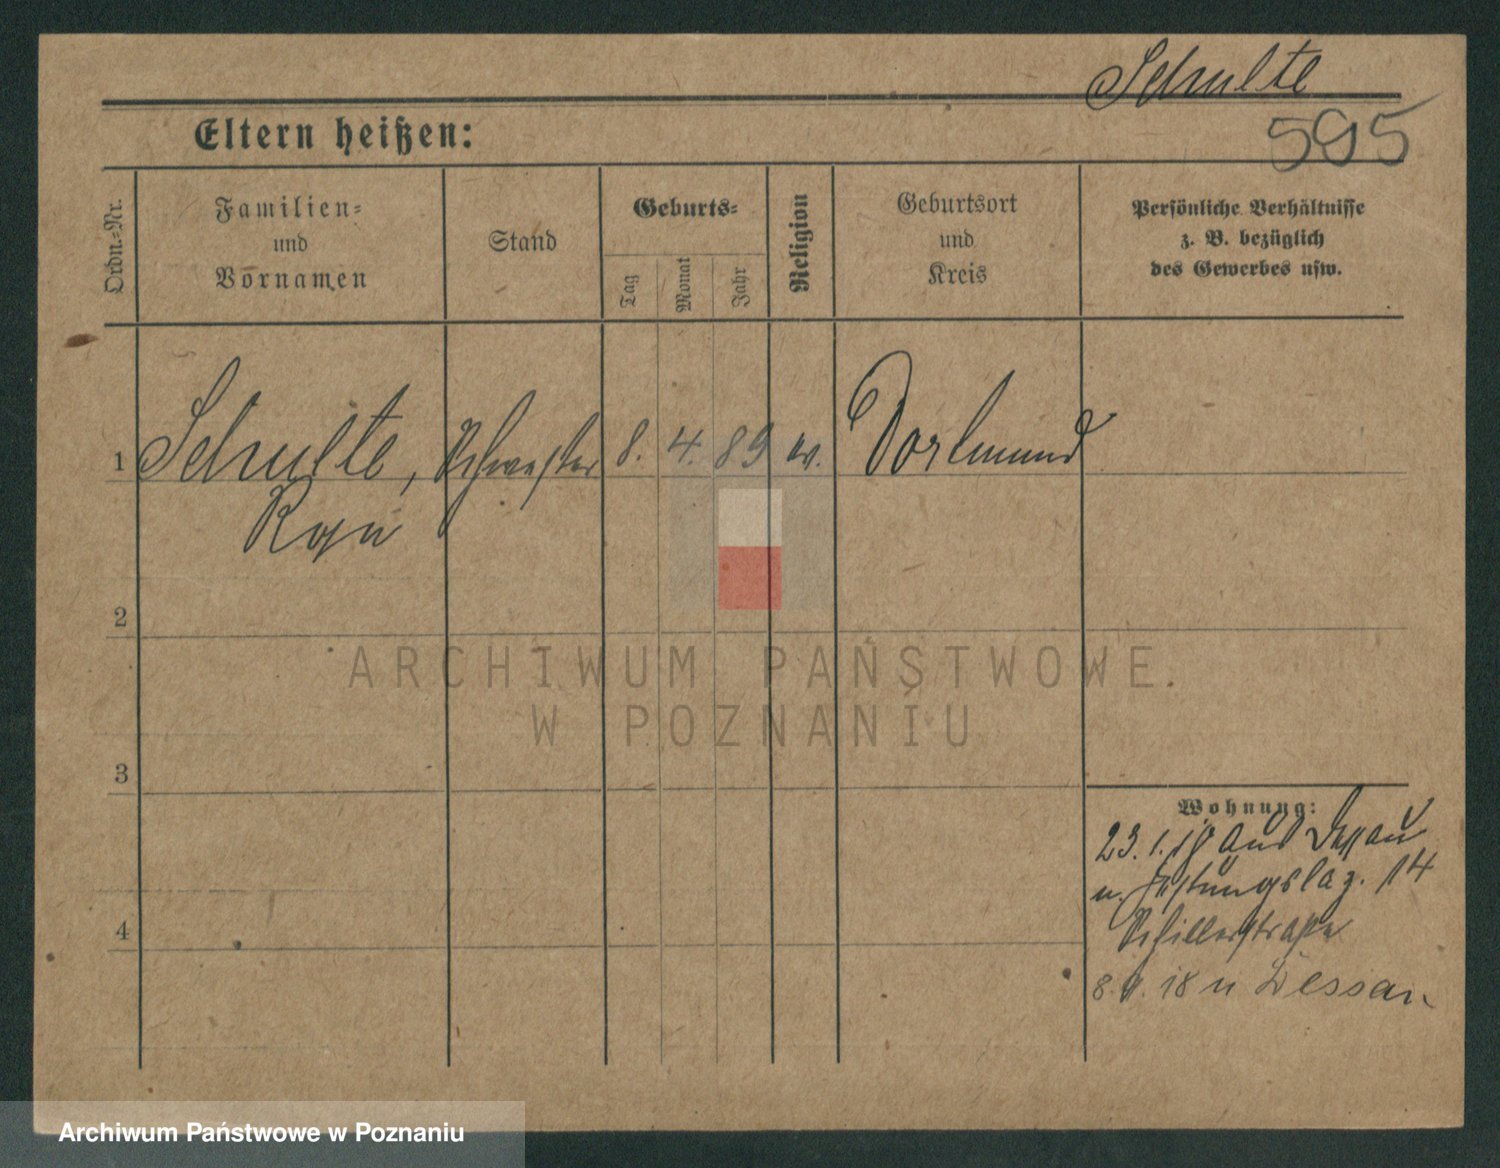 Schulte
595
Eltern heißen:
Ordn.-Nr.
Familien-
und
Vornamen
Stand
Geburts-
Tag
Monat
Jahr
Religion
Geburtsort
und
Kreis
Persönliche Verhältnisse
z. B. bezüglich
des Gewerbes usw.
1 Schulte, Schwester 8. 4. 89 ev. Dortmund
2
3
4
ARCHIWUM PAŃSTWOWE
W POZNANIU
Wohnung:
23. 1. 18 aus Dessau
n. Festungslaz. 14
Schillerstraße
18 n Dessau
Archiwum Państwowe w Poznaniu